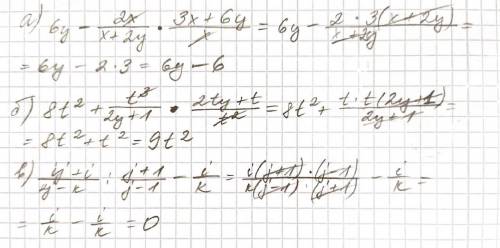 а) 6y - 2x/(x+2y) · (3x+6y)/x = 6y - (2 · 3(x+2y))/(x+2y) =
= 6y - 2·3 = 6y - 6
б) 8t² + t³/(2y+1) · (2ty+t)/t² = 8t² + (t·t(2y+1))/(2y+1) =
= 8t² + t² = 9t²
в) (ij+i)/(kj-k) : (j+1)/(j-1) - i/k = (i(j+1)·(j-1))/(k(j-1)·(j+1)) - i/k =
= i/k - i/k = 0